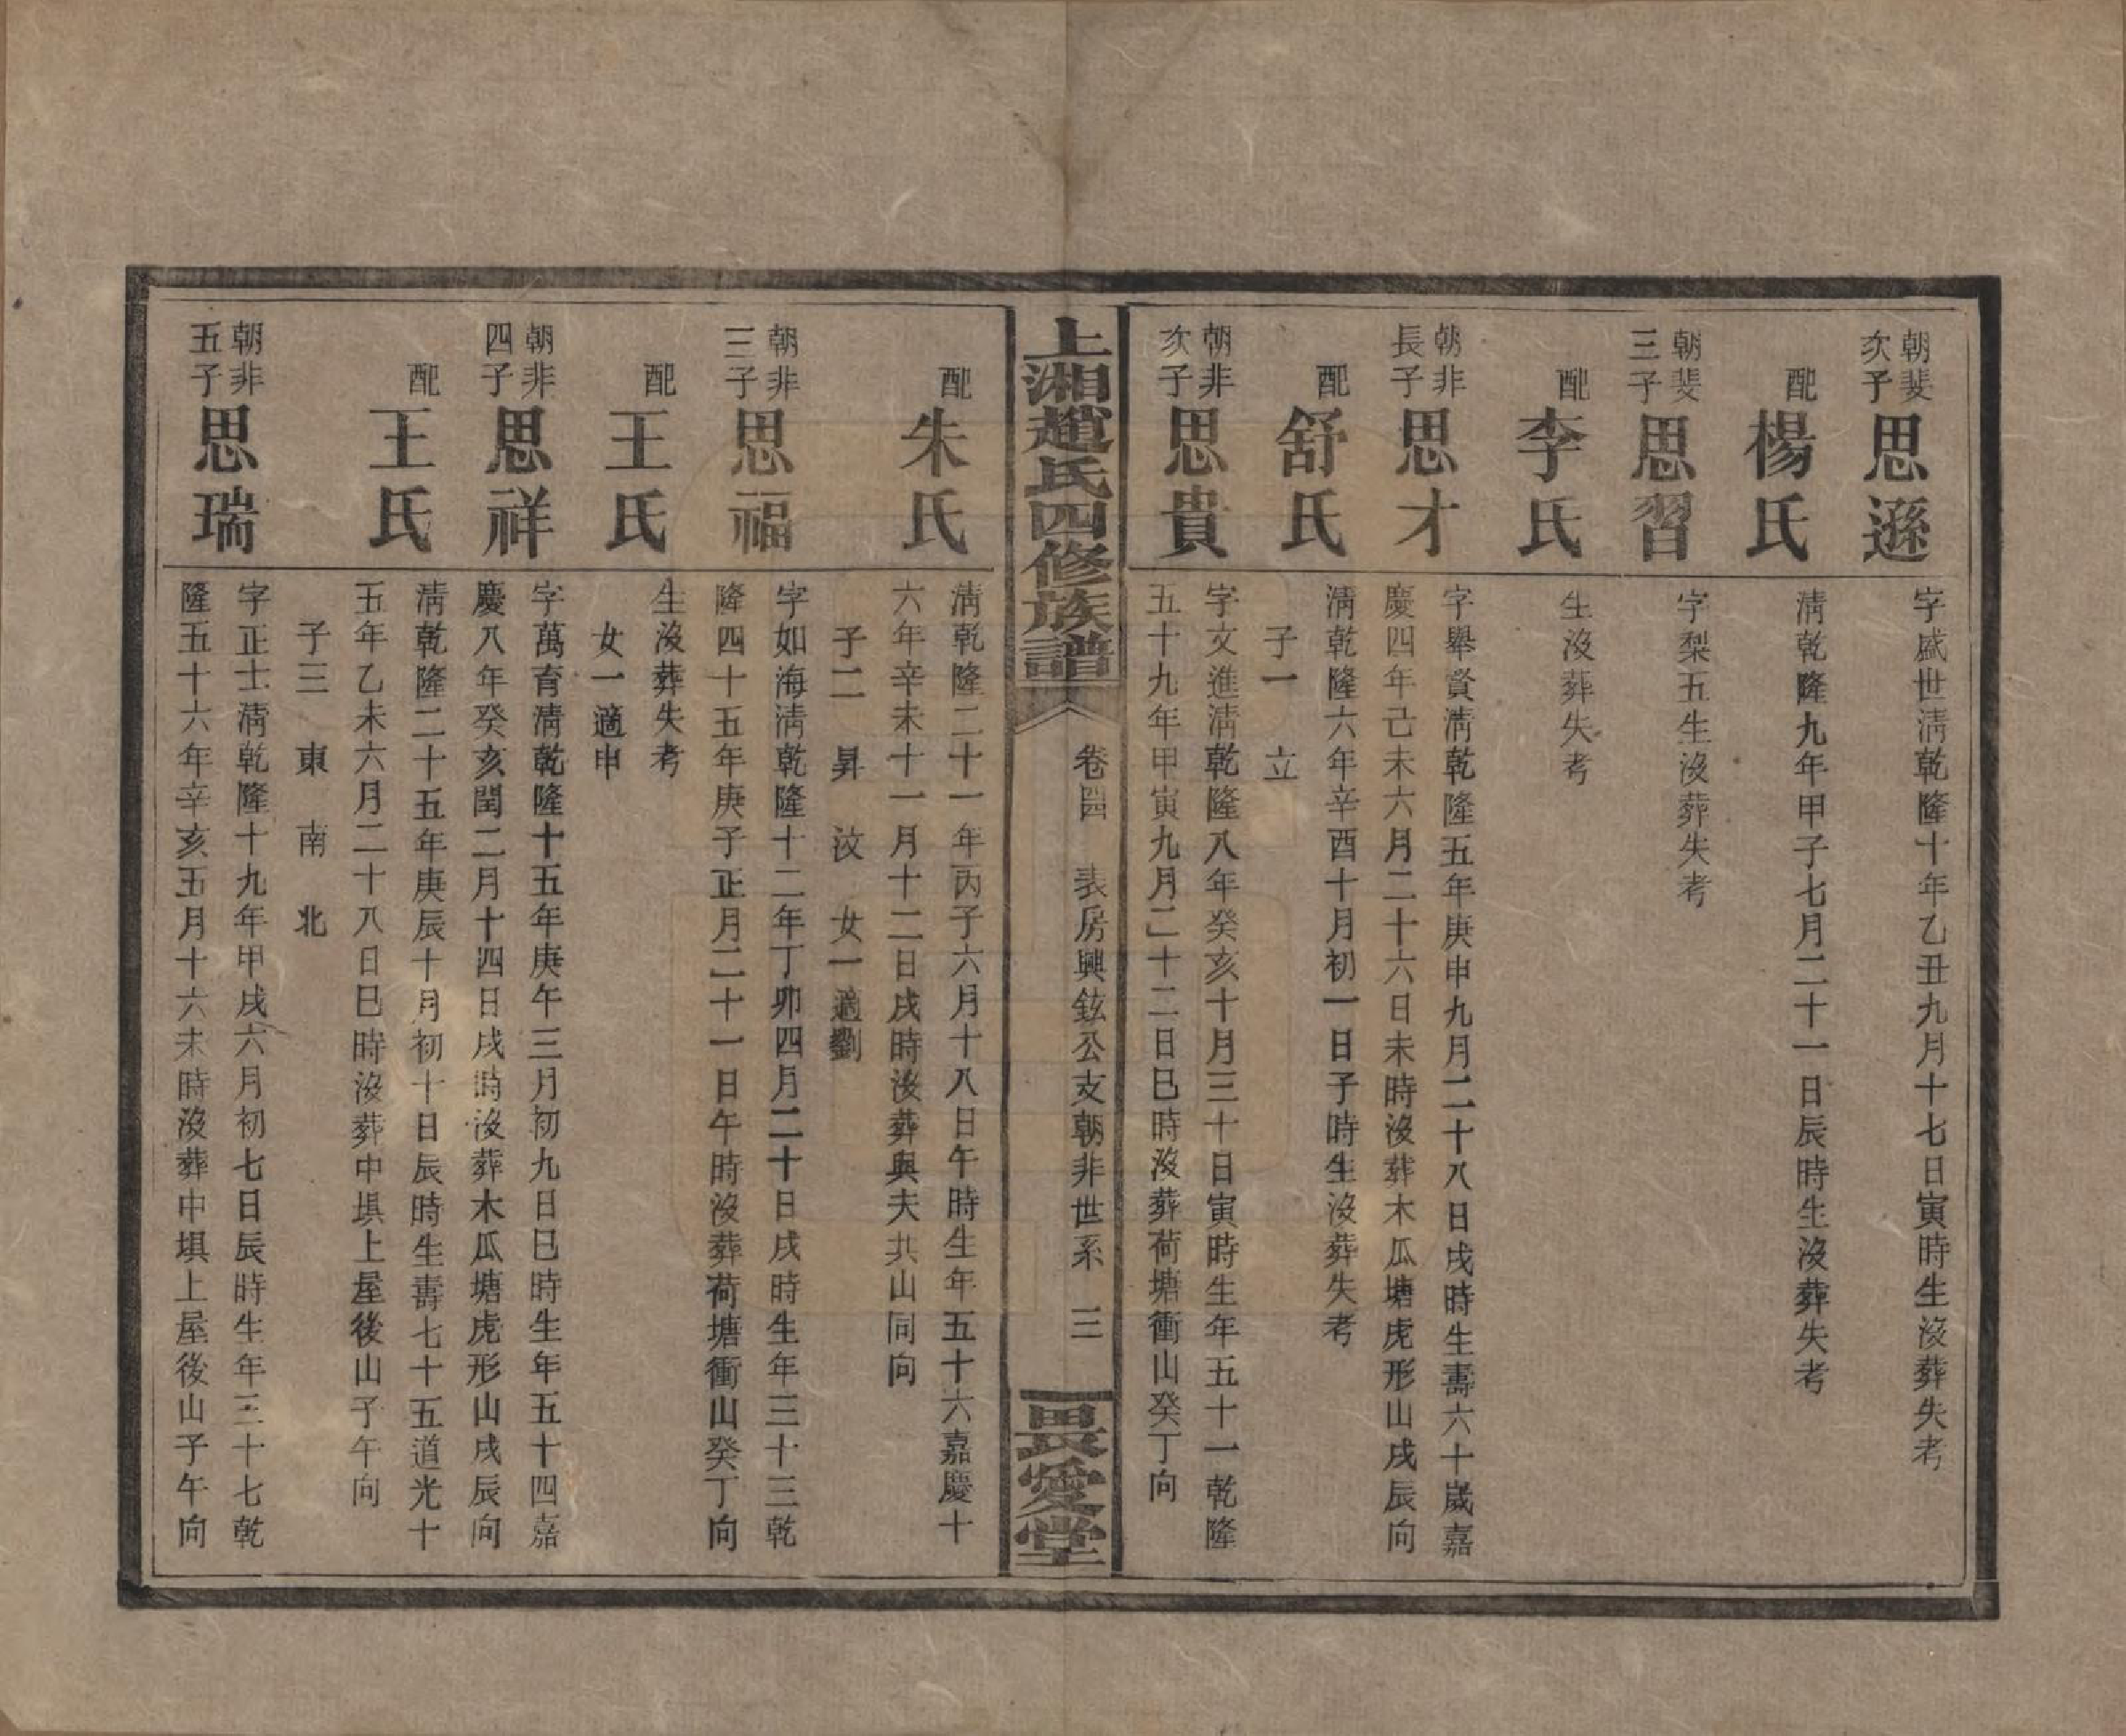 朝斐
次子
思遜
字盛世淸乾隆十年乙丑九月十七日寅時生沒葬失考
配
楊氏
淸乾隆九年甲子七月二十一日辰時生沒葬失考
朝斐
三子
思習
字梨五生沒葬失考
配
李氏
生沒葬失考
朝非
長子
思才
字舉賫淸乾隆五年庚申九月二十八日戌時生壽六十歲嘉
慶四年己未六月二十六日未時沒葬木瓜塘虎形山戌辰向
配
舒氏
淸乾隆六年辛酉十月初一日子時生沒葬失考
子一 立
朝非
次子
思貴
字文進淸乾隆八年癸亥十月三十日寅時生年五十一乾隆
五十九年甲寅九月二十二日巳時沒葬荷塘衝山癸丁向
上湘趙氏四修族譜
卷四 表房興鉉公支朝非世系 三
畏愛堂
配
朱氏
淸乾隆二十一年丙子六月十八日午時生年五十六嘉慶十
六年辛未十一月十二日戌時沒葬與夫共山同向
子二 昇 汶 女一適劉
朝非
三子
思福
字如海淸乾隆十二年丁卯四月二十日戌時生年三十三乾
隆四十五年庚子正月二十一日午時沒葬荷塘衝山癸丁向
配
王氏
生沒葬失考
女一適申
朝非
四子
思祥
字萬育淸乾隆十五年庚午三月初九日巳時生年五十四嘉
慶八年癸亥閏二月十四日戌時沒葬木瓜塘虎形山戌辰向
配
王氏
淸乾隆二十五年庚辰十月初十日辰時生壽七十五道光十
五年乙未六月二十八日巳時沒葬中塤上屋後山子午向
子三 東 南 北
朝非
五子
思瑞
字正士淸乾隆十九年甲戌六月初七日辰時生年三十七乾
隆五十六年辛亥五月十六未時沒葬中塤上屋後山子午向